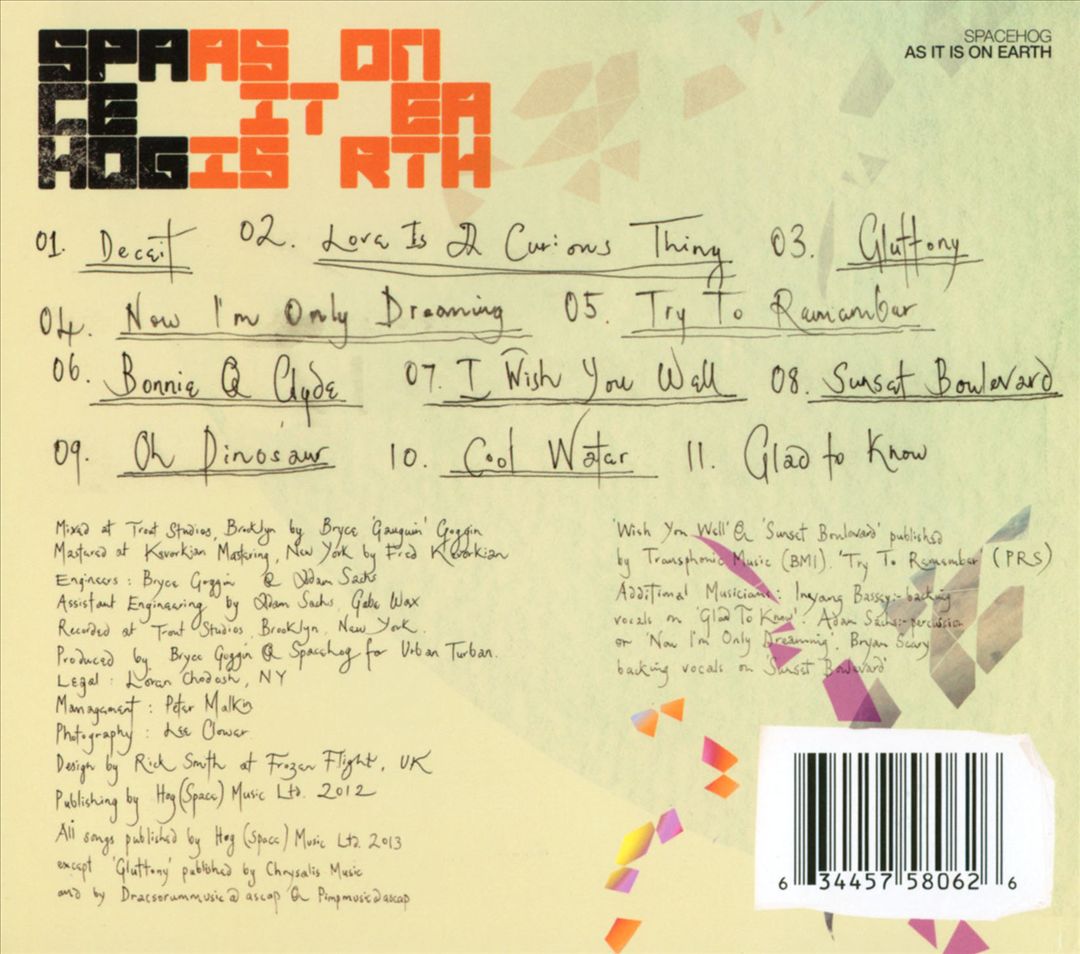 SPAAS ON
CE IT EA
HOGIS RTH
SPACEHOG
AS IT IS ON EARTH
01. Deceit 02. Love Is A Curious Thing 03. Gluttony
04. Now I'm Only Dreaming 05. Try To Remember
06. Bonnie & Clyde 07. I Wish You Well 08. Sunset Boulevard
09. Oh Dinosaur 10. Cool Water 11. Glad to Know
Mixed at Trout Studios, Brooklyn by Bryce 'Gauguin' Goggin
Mastered at Kevorkian Mastering, New York by Fred Kevorkian
Engineers: Bryce Goggin & Adam Sachs
Assistant Engineering by Adam Sachs, Gabe Wax
Recorded at Trout Studios, Brooklyn, New York.
Produced by Bryce Goggin & Spacehog for Urban Turban.
Legal: Loren Chodosh, NY
Management: Peter Malkin
Photography: Lee Clower
Design by Rick Smith at Frozen Flight, UK
Publishing by Hog(Space) Music Ltd. 2012
All songs published by Hog (Space) Music Ltd. 2013
except 'Gluttony' published by Chrysalis Music
and by Dracsorummusic@ascap & Pimpmusic@ascap
'Wish You Well' & 'Sunset Boulevard' published
by Transphonic Music (BMI). 'Try To Remember' (PRS)
Additional Musicians: Inyang Bassey:- backing
vocals on 'Glad To Know'. Adam Sachs:- percussion
on 'Now I'm Only Dreaming'. Bryan Scary
backing vocals on 'Sunset Boulevard'
6 34457 58062 6